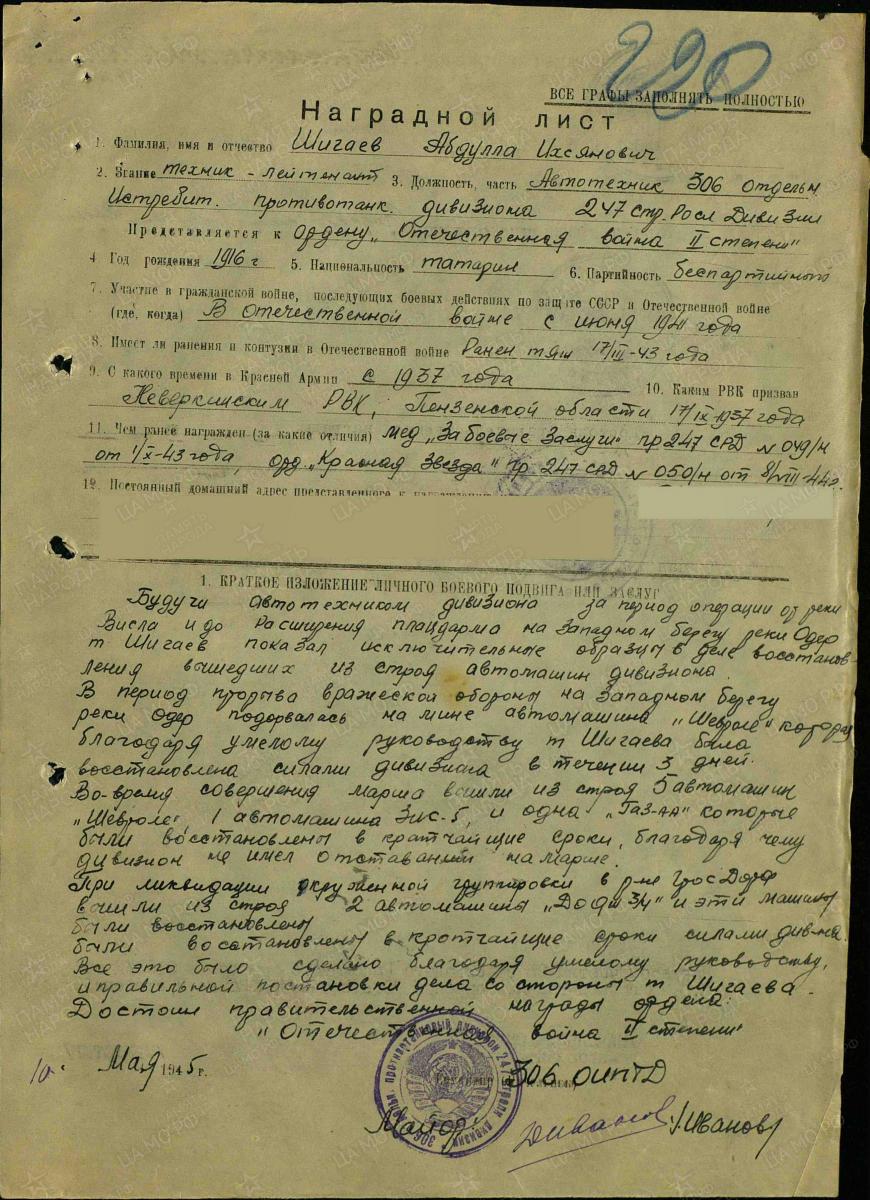 220
ВСЕ ГРАФЫ ЗАПОЛНЯТЬ ПОЛНОСТЬЮ
Наградной лист
1. Фамилия, имя и отчество Шигаев Абдулла Ихсянович
2. Звание техник-лейтенант 3. Должность, часть Автотехник 306 отдельн
Истребит. противотанк. дивизиона 247 стр. Росл Дивизии
Представляется к ордену „Отечественная война II степени"
4 Год рождения 1916 г 5. Национальность татарин 6. Партийность беспартийный
7. Участие в гражданской войне, последующих боевых действиях по защите СССР и Отечественной войне
(где, когда) В Отечественной войне с июня 1941 года
8. Имеет ли ранения и контузии в Отечественной войне Ранен тяж 17/III-43 года
9. С какого времени в Красной Армии с 1937 года 10. Каким РВК призван
Неверкинским РВК, Пензенской области 17/IX-1937 года
11. Чем ранее награжден (за какие отличия) мед „За боевые Заслуги" пр 247 СРД № 049/н
от 1/X-43 года, орд. „Красная Звезда" пр. 247 СРД № 050/н от 8/VIII-44г.
12. Постоянный домашний адрес представленного к
1. КРАТКОЕ ИЗЛОЖЕНИЕ ЛИЧНОГО БОЕВОГО ПОДВИГА ИЛИ ЗАСЛУГ
Будучи автотехником дивизиона за период операции от реки
Висла и до Расширения плацдарма на Западном берегу реки Одер
т Шигаев показал исключительные образцы в деле восстанов-
ления вышедших из строя автомашин дивизиона.
В период прорыва вражеской обороны на Западном берегу
реки Одер подорвалась на мине автомашина „Шевроле" которая
благодаря умелому руководству т Шигаева была
восстановлена силами дивизиона в течении 3 дней.
Во-время совершения марша вышли из строя 5 автомашин
„Шевроле" 1 автомашина Зис-5, и одна „Газ-АА" которые
были восстановлены в кратчайщие сроки, благодаря чему
дивизион не имел отставаний на марше.
При ликвидации окруженной группировки в р-не ГросДорф
вышли из строя 2 автомашины „Додж 3/4" и эти машины
были восстановлены
были восстановлены в кротчайщие сроки силами див-на.
Все это было сделано благодаря умелому руководству,
и правильной постановки дела со стороны т Шигаева.
Достоин правительственной награды ордена:
„Отечественная война II степени"
10. Мая 1945 г. 306 ОИПТД
Майор /Иванов/